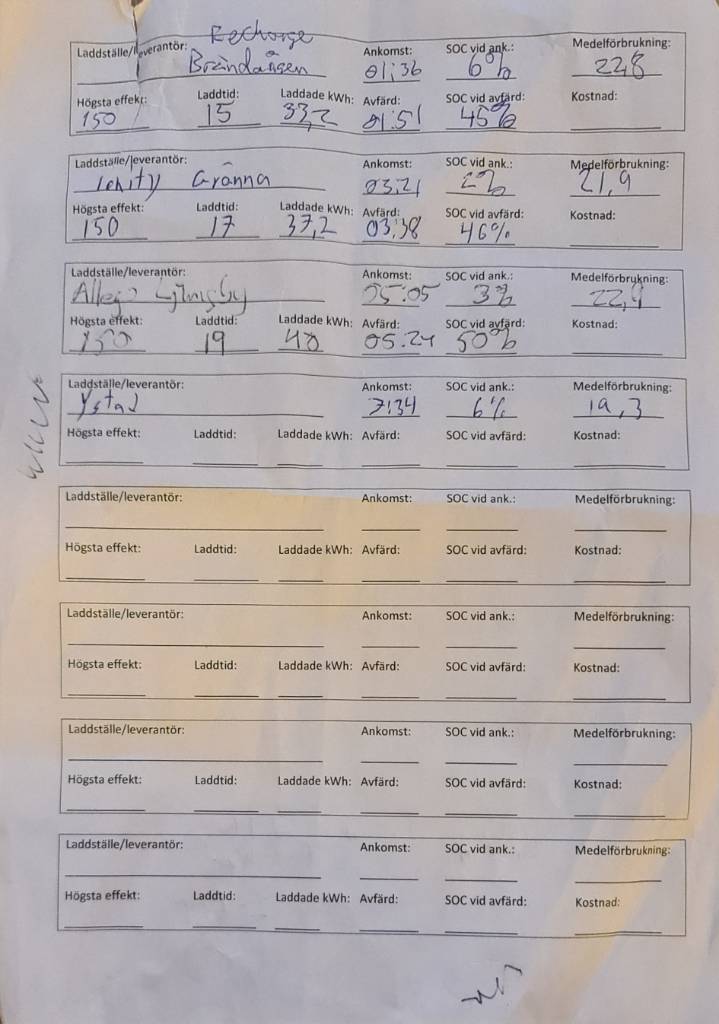 Recharge
Laddställe/leverantör: Brändängen Ankomst: 01:36 SOC vid ank.: 6% Medelförbrukning: 22,8
Högsta effekt: 150 Laddtid: 15 Laddade kWh: 33,2 Avfärd: 01:51 SOC vid avfärd: 45% Kostnad:
Laddställe/leverantör: Ionity Gränna Ankomst: 03:21 SOC vid ank.: 2% Medelförbrukning: 21,9
Högsta effekt: 150 Laddtid: 17 Laddade kWh: 37,2 Avfärd: 03:38 SOC vid avfärd: 46% Kostnad:
Laddställe/leverantör: Allego Ljungby Ankomst: 05:05 SOC vid ank.: 3% Medelförbrukning: 22,4
Högsta effekt: 150 Laddtid: 19 Laddade kWh: 40 Avfärd: 05.24 SOC vid avfärd: 50% Kostnad:
Laddställe/leverantör: Ystad Ankomst: 7:34 SOC vid ank.: 6% Medelförbrukning: 19,3
Högsta effekt: Laddtid: Laddade kWh: Avfärd: SOC vid avfärd: Kostnad:
Laddställe/leverantör: Ankomst: SOC vid ank.: Medelförbrukning:
Högsta effekt: Laddtid: Laddade kWh: Avfärd: SOC vid avfärd: Kostnad:
Laddställe/leverantör: Ankomst: SOC vid ank.: Medelförbrukning:
Högsta effekt: Laddtid: Laddade kWh: Avfärd: SOC vid avfärd: Kostnad:
Laddställe/leverantör: Ankomst: SOC vid ank.: Medelförbrukning:
Högsta effekt: Laddtid: Laddade kWh: Avfärd: SOC vid avfärd: Kostnad:
Laddställe/leverantör: Ankomst: SOC vid ank.: Medelförbrukning:
Högsta effekt: Laddtid: Laddade kWh: Avfärd: SOC vid avfärd: Kostnad: